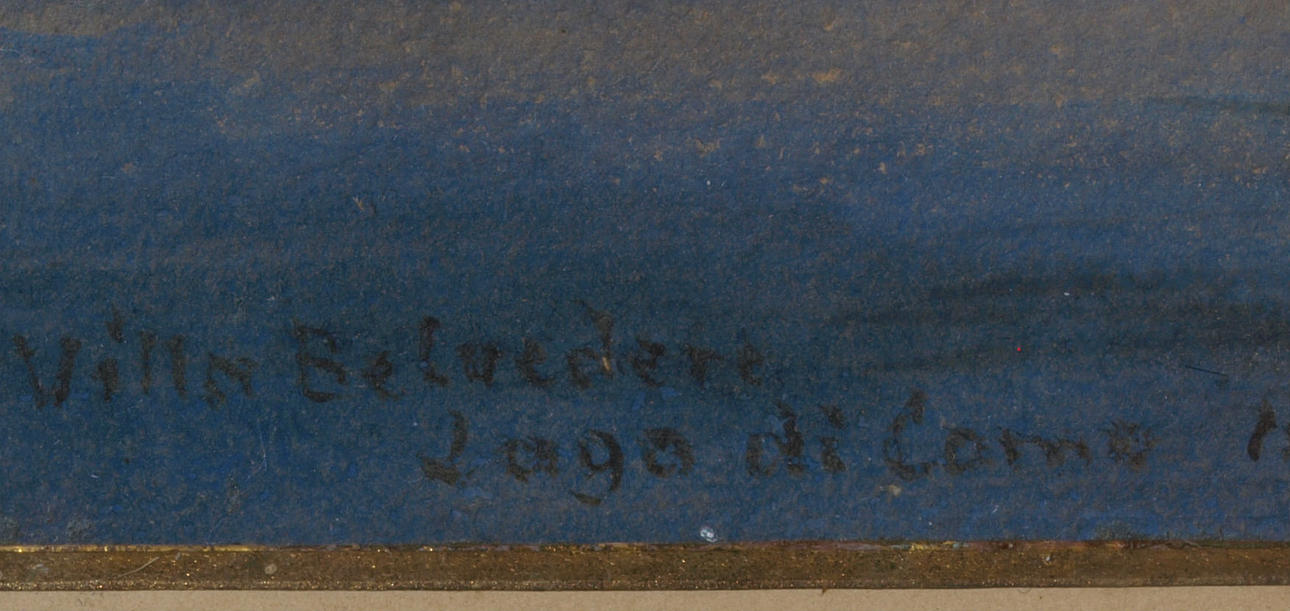 Villa Belvedere
Lago di Como